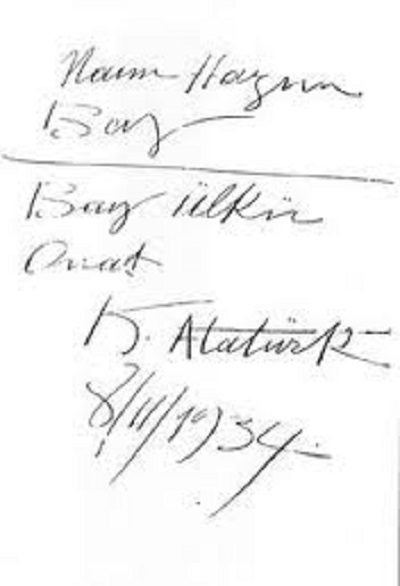 Naim Hazım
Bay
Bay Ülkü
Onat
K. Atatürk
8/11/1934